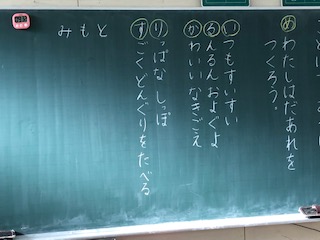 めわたしはだあれを
つくろう。
いつもすいすい
るんるんおよぐよ
かわいいなきごえ
りっぱなしっぽ
すごくどんぐりをたべる
みもと